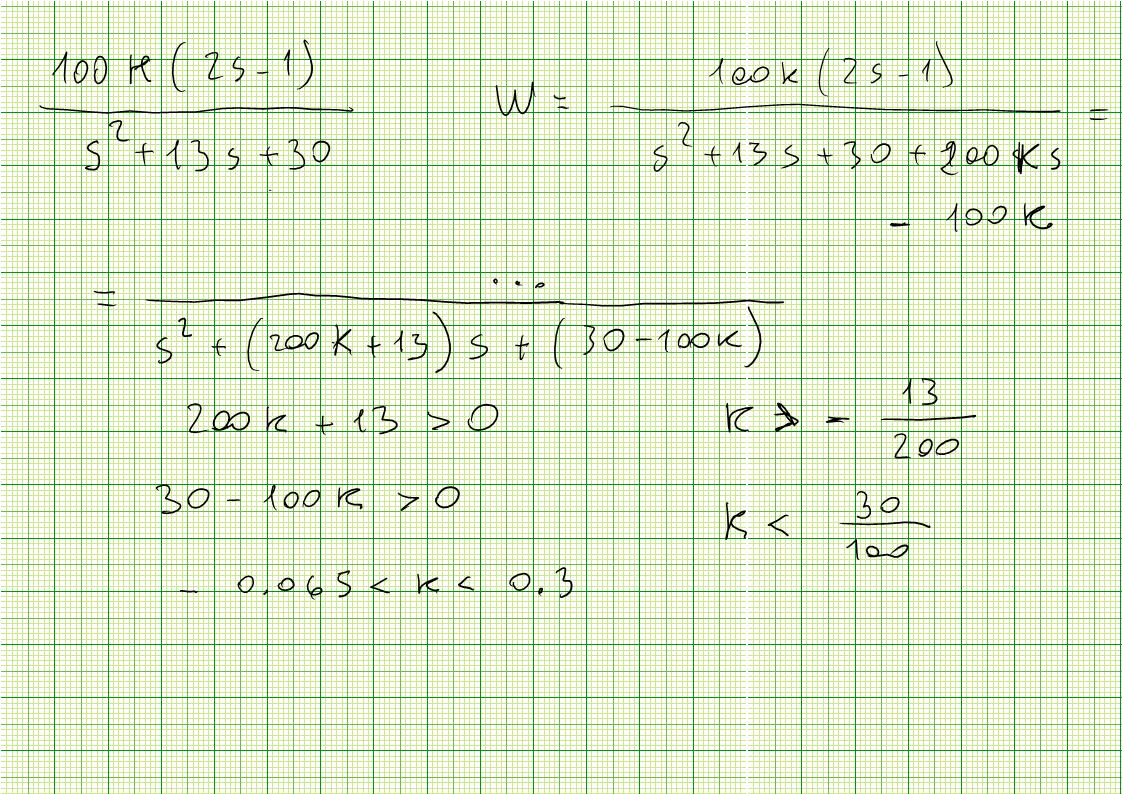 100K(2s-1)
s²+13s+30
W = 100K(2s-1) =
s²+13s+30+200Ks
- 100K
= ...
s²+(200K+13)s+(30-100K)
200K+13>0 K > - 13/200
30-100K>0 K < 30/100
- 0.065<K<0.3